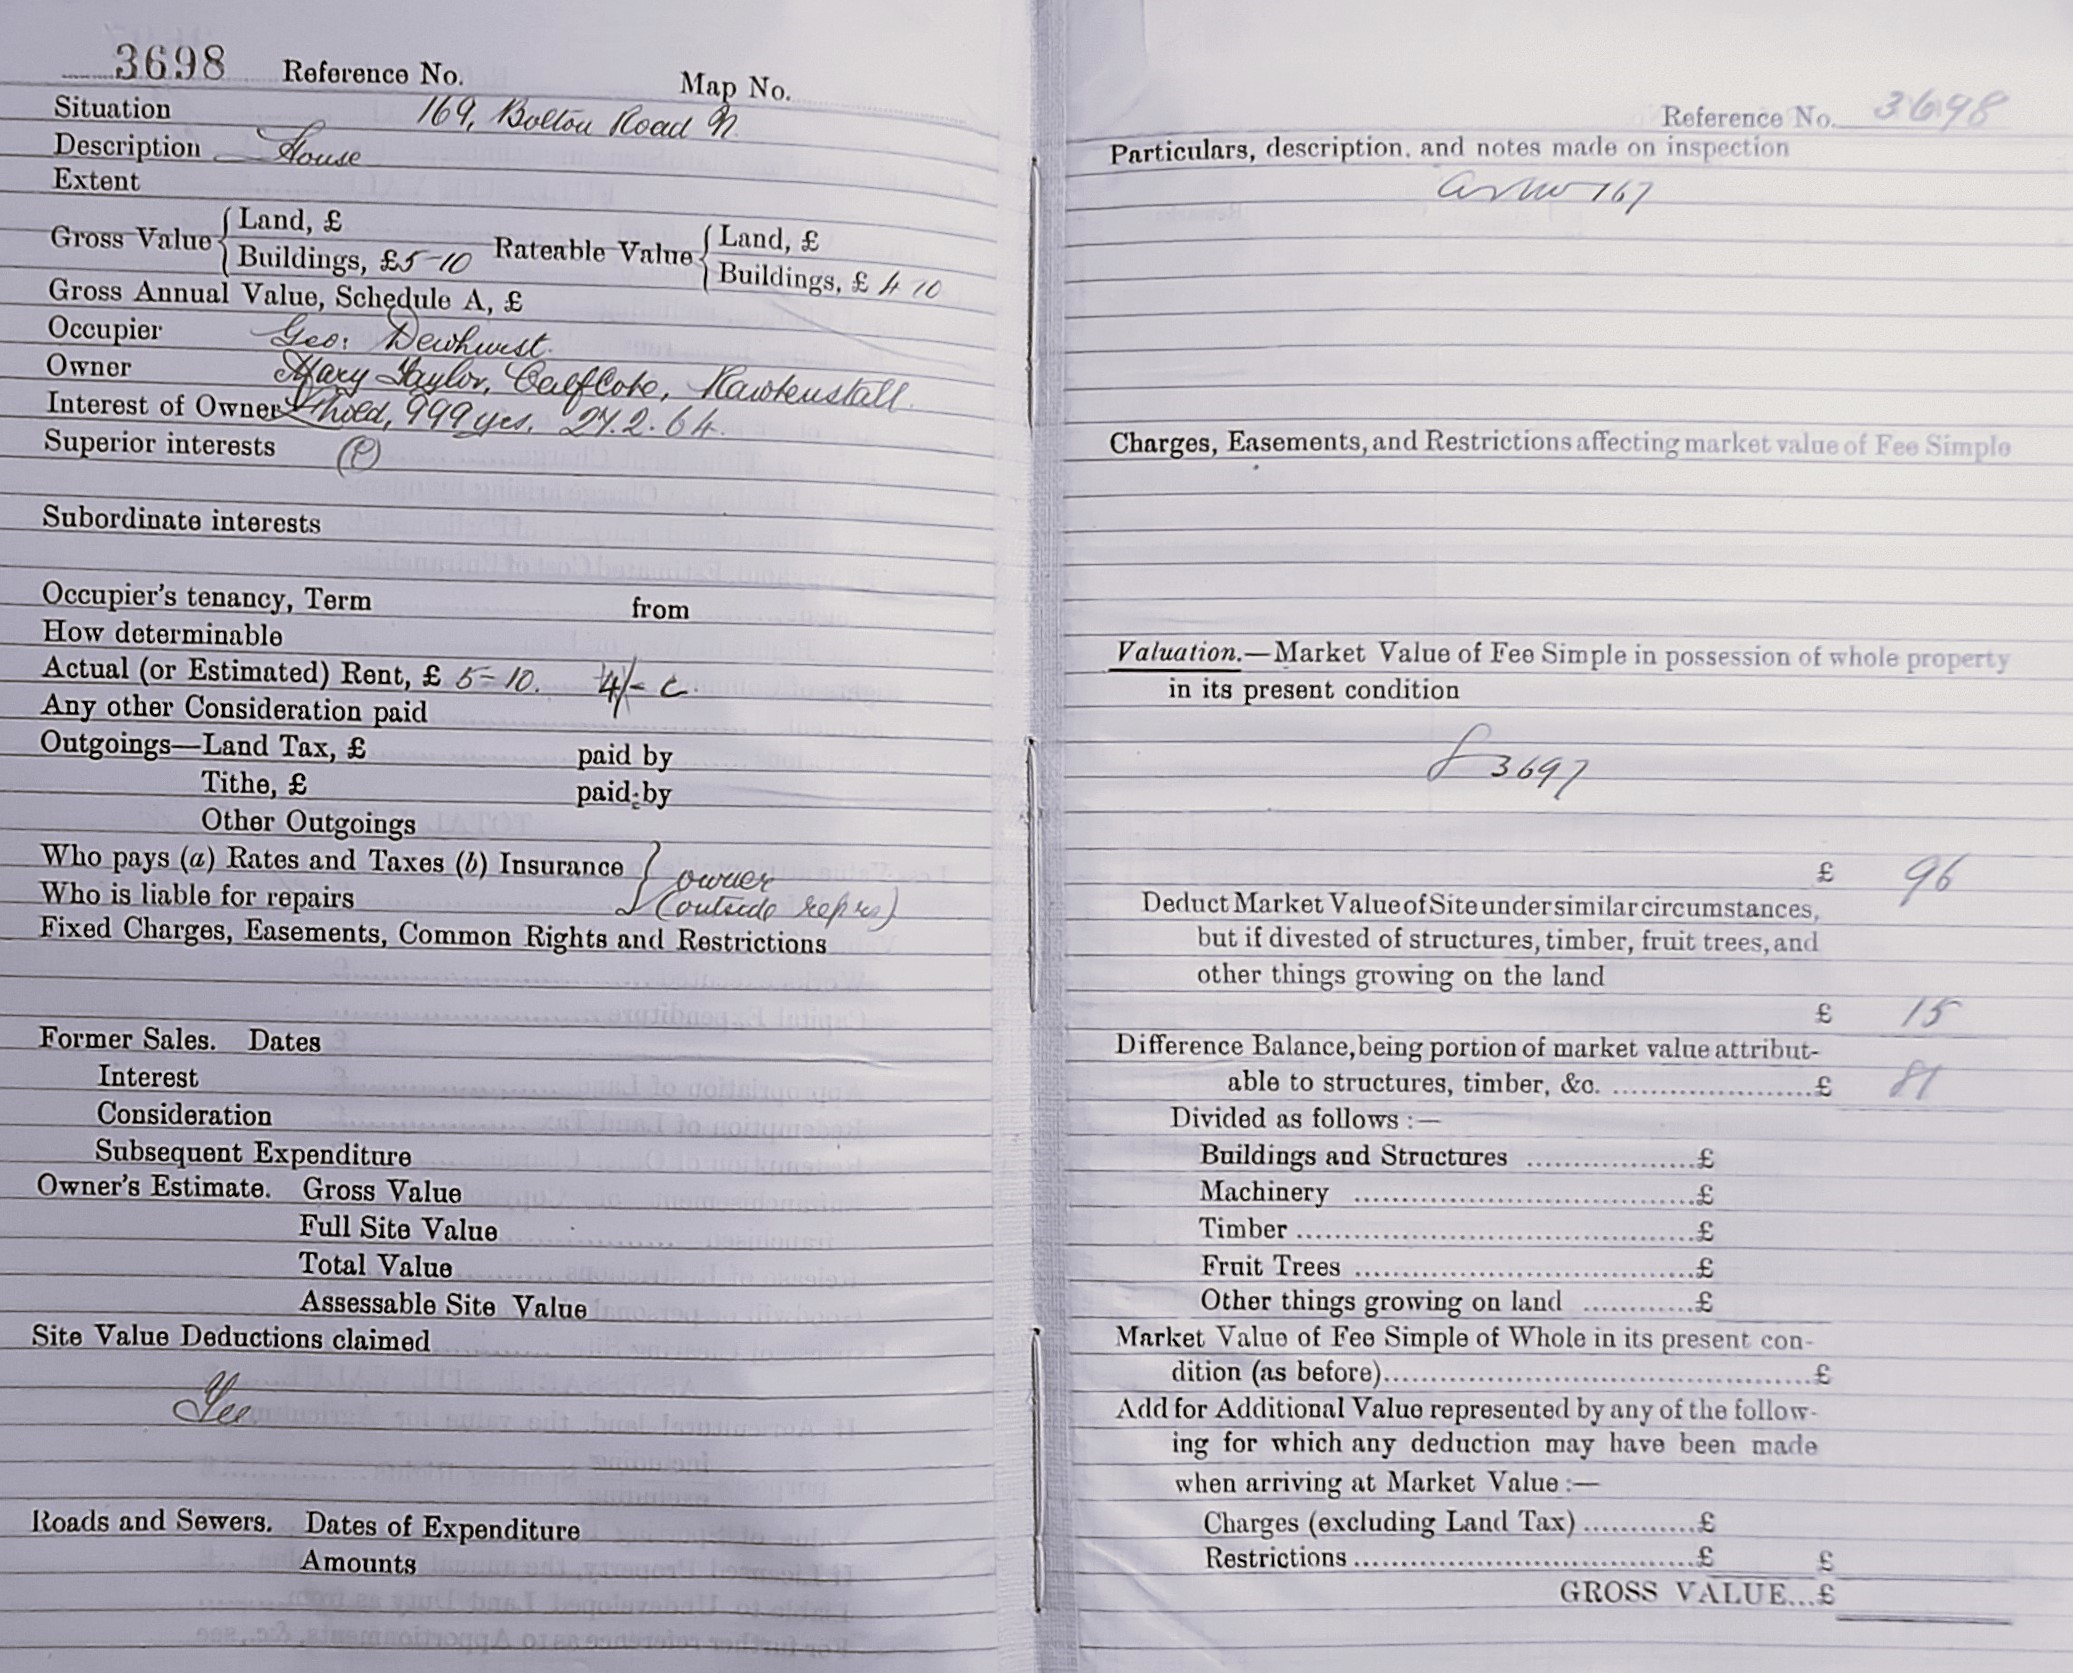 3698 Reference No. Map No.
Situation 169, Bolton Road N.
Description House
Extent
Gross Value { Land, £ Rateable Value { Land, £
Buildings, £5-10 Buildings, £ 4 10
Gross Annual Value, Schedule A, £
Occupier Geo: Dewhurst.
Owner Mary Taylor, Calf Cote, Rawtenstall.
Interest of Owner L'hold, 999 yrs. 27.2.64.
Superior interests
Subordinate interests
Occupier's tenancy, Term from
How determinable
Actual (or Estimated) Rent, £ 5=10. 4/- c
Any other Consideration paid
Outgoings—Land Tax, £ paid by
Tithe, £ paid by
Other Outgoings
Who pays (a) Rates and Taxes (b) Insurance } owner
Who is liable for repairs (outside reprs)
Fixed Charges, Easements, Common Rights and Restrictions
Former Sales. Dates
Interest
Consideration
Subsequent Expenditure
Owner's Estimate. Gross Value
Full Site Value
Total Value
Assessable Site Value
Site Value Deductions claimed
Roads and Sewers. Dates of Expenditure
Amounts
Reference No. 3698
Particulars, description, and notes made on inspection
167
Charges, Easements, and Restrictions affecting market value of Fee Simple
Valuation.—Market Value of Fee Simple in possession of whole property
in its present condition
3697
£ 96
Deduct Market Value of Site under similar circumstances,
but if divested of structures, timber, fruit trees, and
other things growing on the land
£ 15
Difference Balance, being portion of market value attribut-
able to structures, timber, &c. ........................£ 81
Divided as follows :—
Buildings and Structures ..................£
Machinery ....................................£
Timber ..........................................£
Fruit Trees ....................................£
Other things growing on land ............£
Market Value of Fee Simple of Whole in its present con-
dition (as before)..............................................£
Add for Additional Value represented by any of the follow-
ing for which any deduction may have been made
when arriving at Market Value :—
Charges (excluding Land Tax) ............£
Restrictions ....................................£ £
GROSS VALUE...£